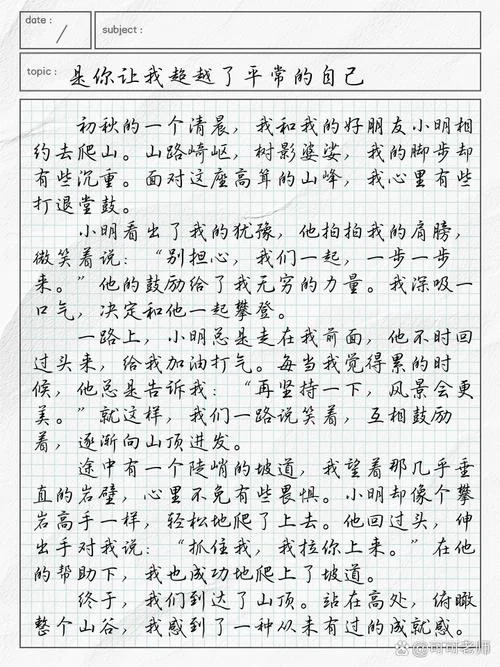 date :
/
subject:
topic : 是你让我超越了平常的自己
初秋的一个清晨，我和我的好朋友小明相
约去爬山。山路崎岖，树影婆娑，我的脚步却
有些沉重。面对这座高耸的山峰，我心里有些
打退堂鼓。
小明看出了我的犹豫，他拍拍我的肩膀，
微笑着说：“别担心，我们一起，一步一步
来。”他的鼓励给了我无穷的力量。我深吸一
口气，决定和他一起攀登。
一路上，小明总是走在我前面，他不时回
过头来，给我加油打气。每当我觉得累的时
候，他总是告诉我：“再坚持一下，风景会更
美。”就这样，我们一路说笑着，互相鼓励
着，逐渐向山顶进发。
途中有一个陡峭的坡道，我望着那几乎垂
直的岩壁，心里不免有些畏惧。小明却像个攀
岩高手一样，轻松地爬了上去。他回过头，伸
出手对我说：“抓住我，我拉你上来。”在他
的帮助下，我也成功地爬上了坡道。
终于，我们到达了山顶。站在高处，俯瞰
整个山谷，我感到了一种从未有过的成就感。
@可可老师